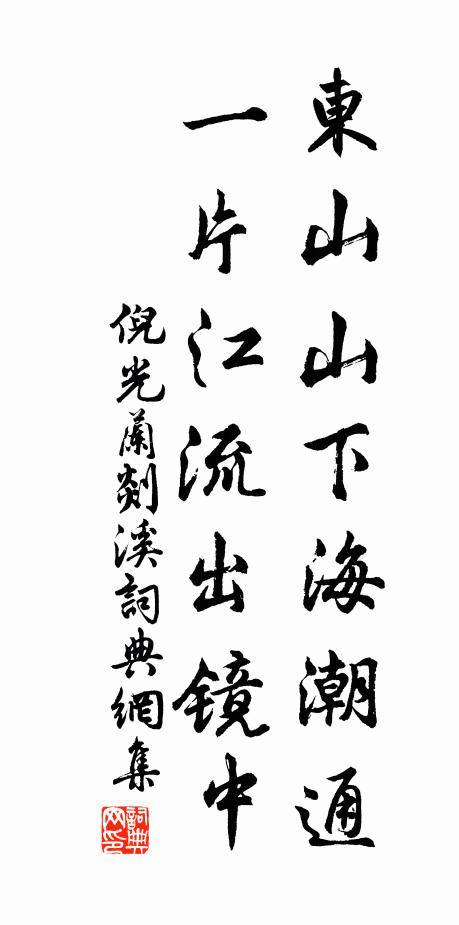 東山山下海潮通
一片江流出鏡中
倪光蘭剡溪詞典網集
詞典网印